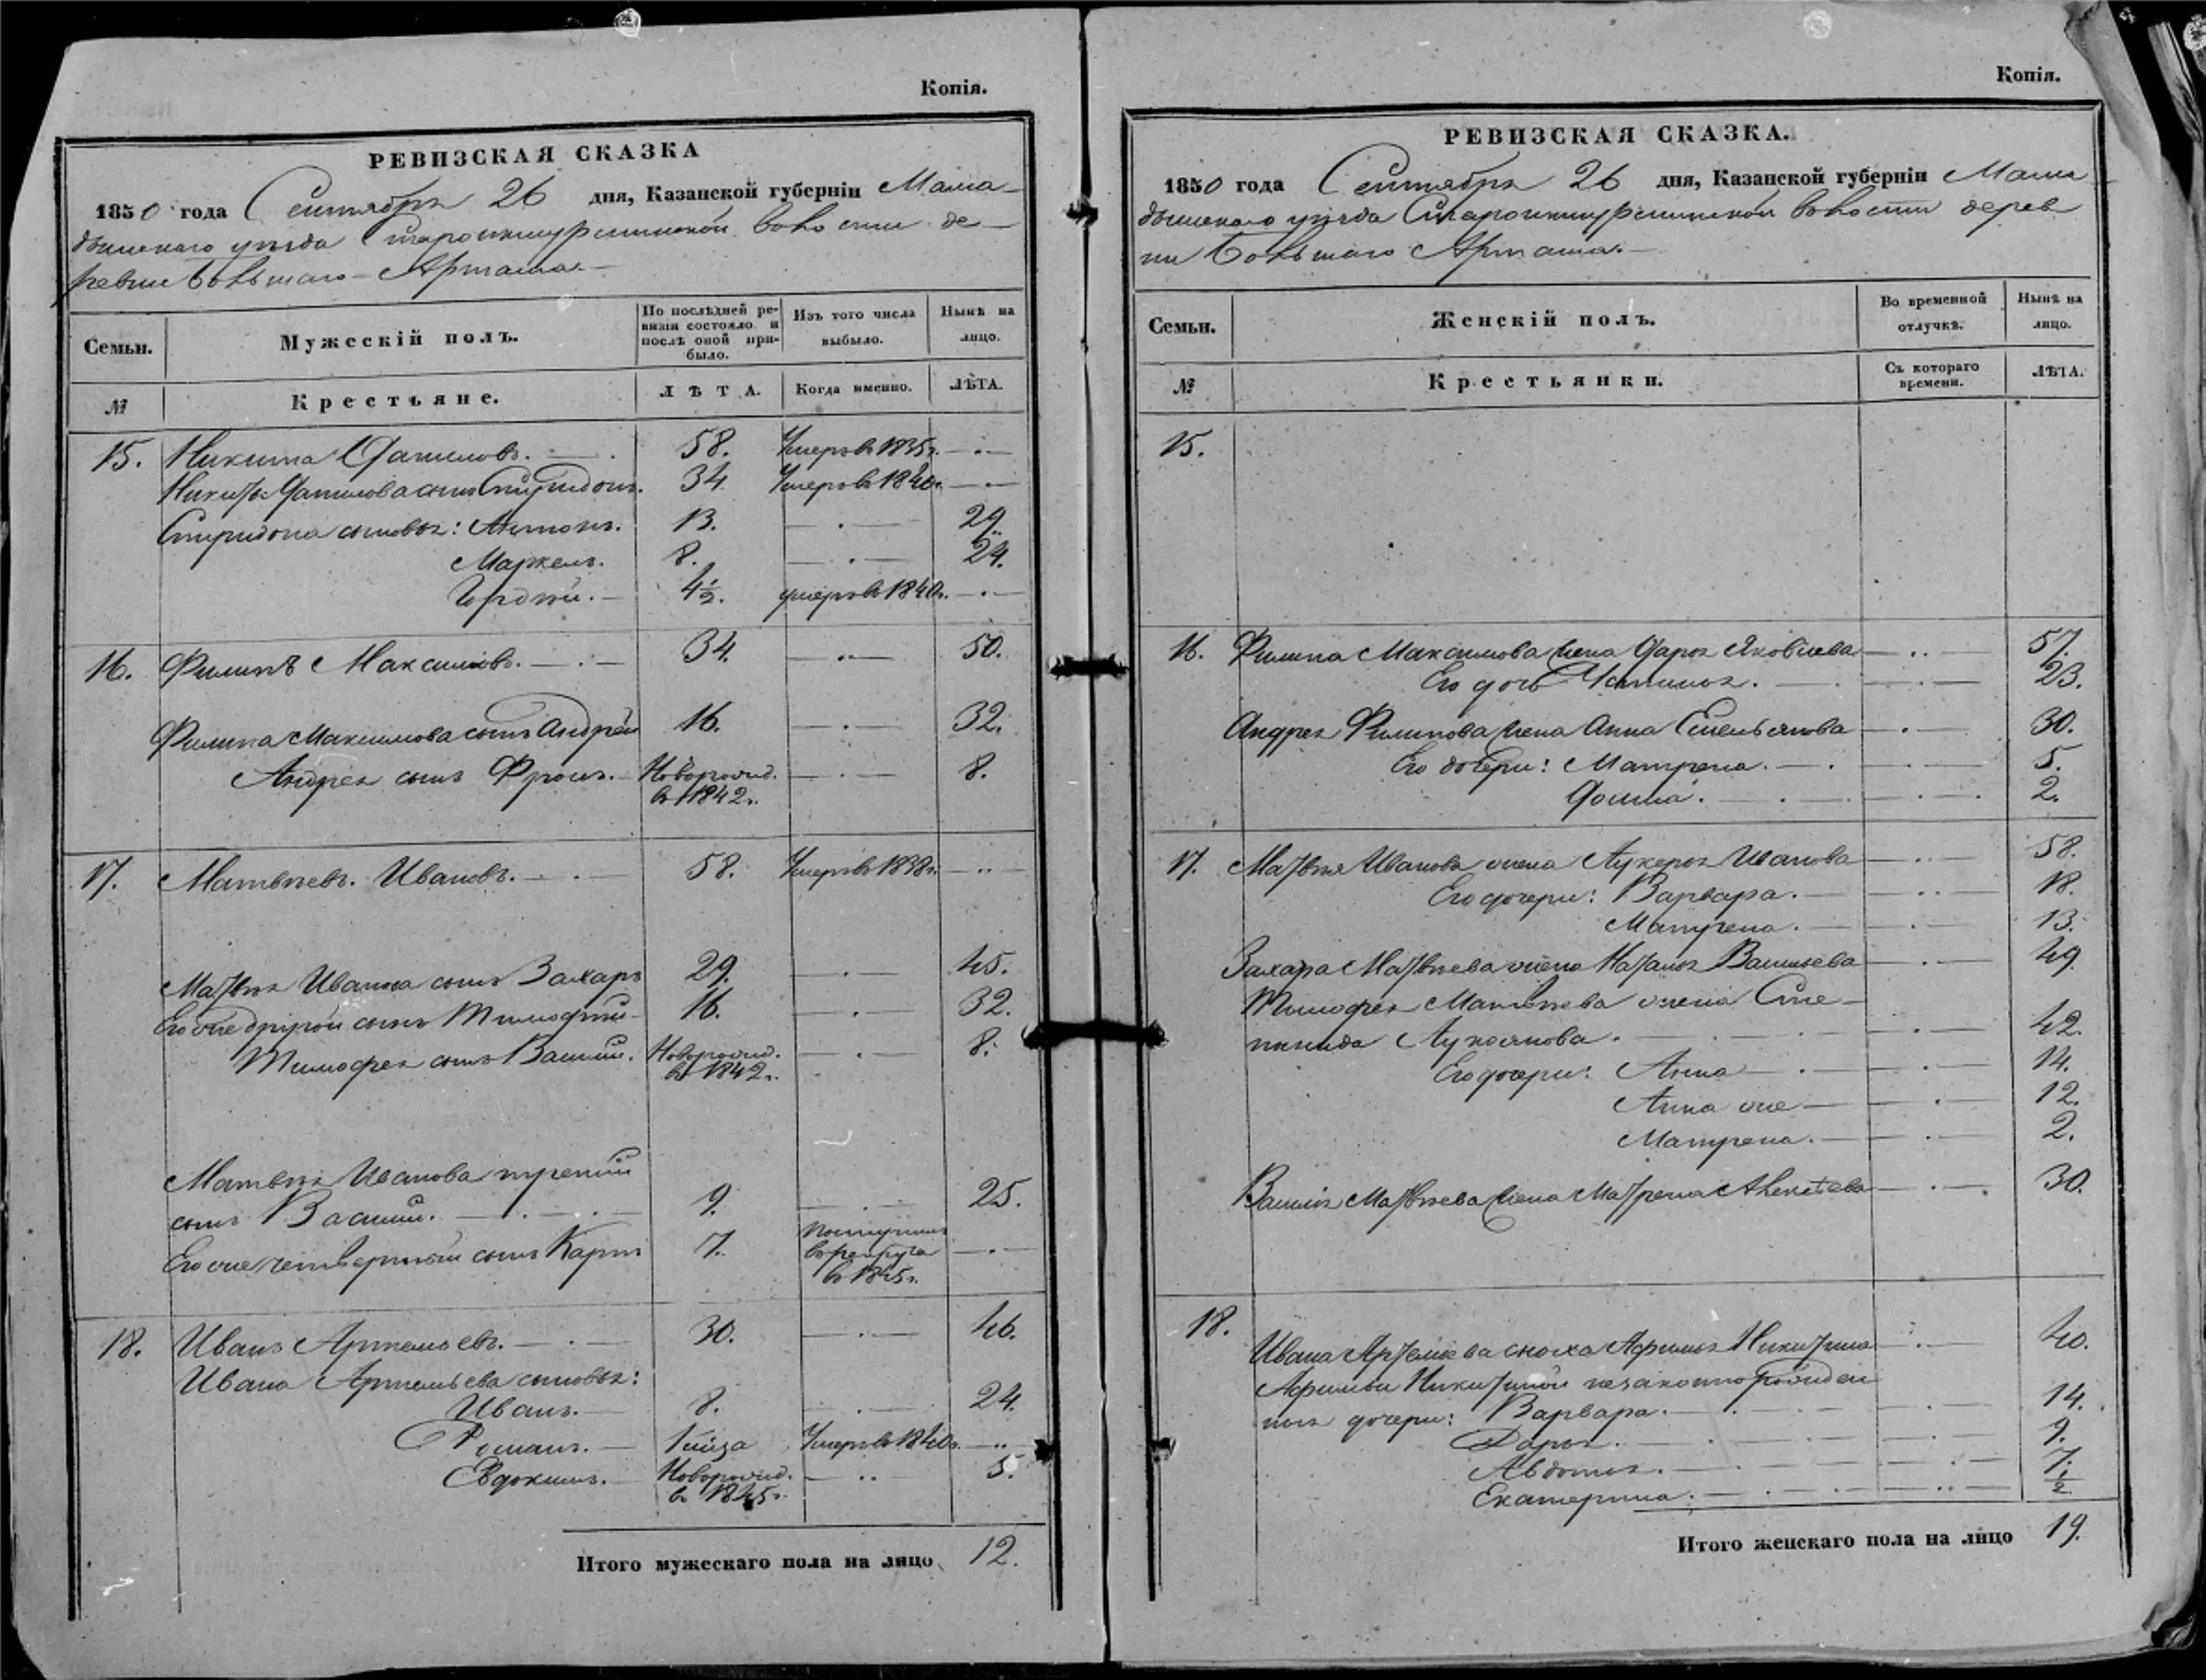 Копія.
РЕВИЗСКАЯ СКАЗКА
1850 года Сентября 26 дня, Казанской губерніи Мама-
дышскаго уѣзда Староикшурминской волости де-
ревни Большаго Арташа.
Семьи. Мужескій полъ. По послѣдней ре-
визіи состояло и
послѣ оной при-
было. Изъ того числа
выбыло. Нынѣ на
лицо.
№ Крестьяне. ЛѢТА. Когда именно. ЛѢТА.
15. Никита Даниловъ. 58. Умеръ въ 1835г.
Никиты Данилова сынъ Спиридонъ. 34 Умеръ въ 1840г.
Спиридона сыновья: Антонъ. 13. 29.
Маркелъ. 8. 24.
Гордѣй. 4½. умеръ въ 1840г.
16. Филипъ Максимовъ. 34. 50.
Филипа Максимова сынъ Андрей 16. 32.
Андрея сынъ Фролъ. Новорожд.
въ 1842г. 8.
17. Матвѣевъ. Ивановъ. 58. Умеръ въ 1838г.
Матвѣя Иванова сынъ Захаръ 29. 45.
Его же другой сынъ Тимофѣй 16. 32.
Тимофея сынъ Василій. Новорожд.
въ 1842г. 8.
Матвѣя Иванова третій
сынъ Василій. 9. 25.
Его же четвертый сынъ Карпъ 7. поступилъ
въ рекрута
въ 1845г.
18. Иванъ Артемьевъ. 30. 46.
Ивана Артемьева сыновья:
Иванъ. 8. 24.
Романъ. 1 мѣсяца Умеръ въ 1840г.
Евдокимъ. Новорожд.
въ 1845г. 5.
Итого мужескаго пола на лицо 12.
Копія.
РЕВИЗСКАЯ СКАЗКА.
1850 года Сентября 26 дня, Казанской губерніи Мама
дышскаго уѣзда Староикшурминской волости дерев
ни Большаго Арташа.
Семьи. Женскій полъ. Во временной
отлучкѣ. Нынѣ на
лицо.
№ Крестьянки. Съ котораго
времени. ЛѢТА.
15.
16. Филипа Максимова жена Дарья Яковлева 57.
Его дочь Устинья. 23.
Андрея Филипова жена Анна Емельянова 30.
Его дочери: Матрена. 5.
Домна. 2.
17. Матвѣя Иванова жена Лукерья Иванова 58.
Его дочери: Варвара. 18.
Матрена. 13.
Захара Матвѣева жена Наталья Васильева 49
Тимофея Матвѣева жена Сте-
панида Лукоянова. 42.
Его дочери: Анна 14.
Анна же 12.
Матрена. 2.
Василья Матвѣева жена Матрена Алексѣева 30.
18. Ивана Артемьева сноха Афимья Никитина 40.
Афимьи Никитиной незаконнорожден
ныя дочери: Варвара. 14.
Дарья. 9.
Авдотья. 7.
Екатерина. ½
Итого женскаго пола на лицо 19.